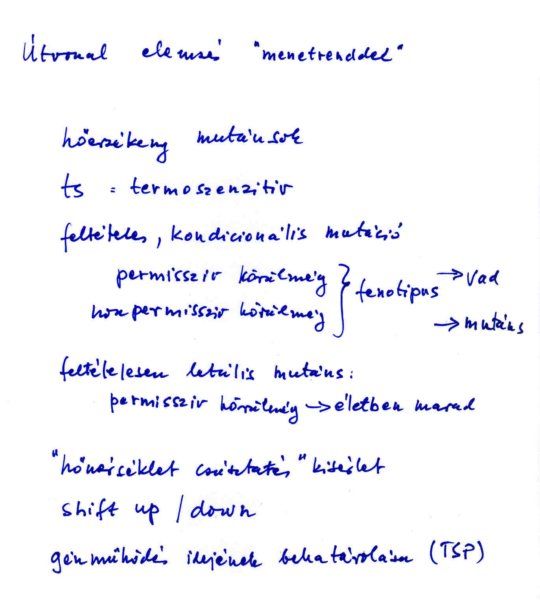 Útvonal elemzés "menetrenddel"
hőérzékeny mutánsok
ts = termoszenzitiv
feltételes, kondicionális mutáció
permissziv körülmény } fenotipus → vad
non permissziv körülmény → mutáns
feltételesen letális mutáns:
permissziv körülmény → életben marad
"hőmérséklet csúsztatás" kisérlet
shift up / down
génműködés idejének behatárolása (TSP)